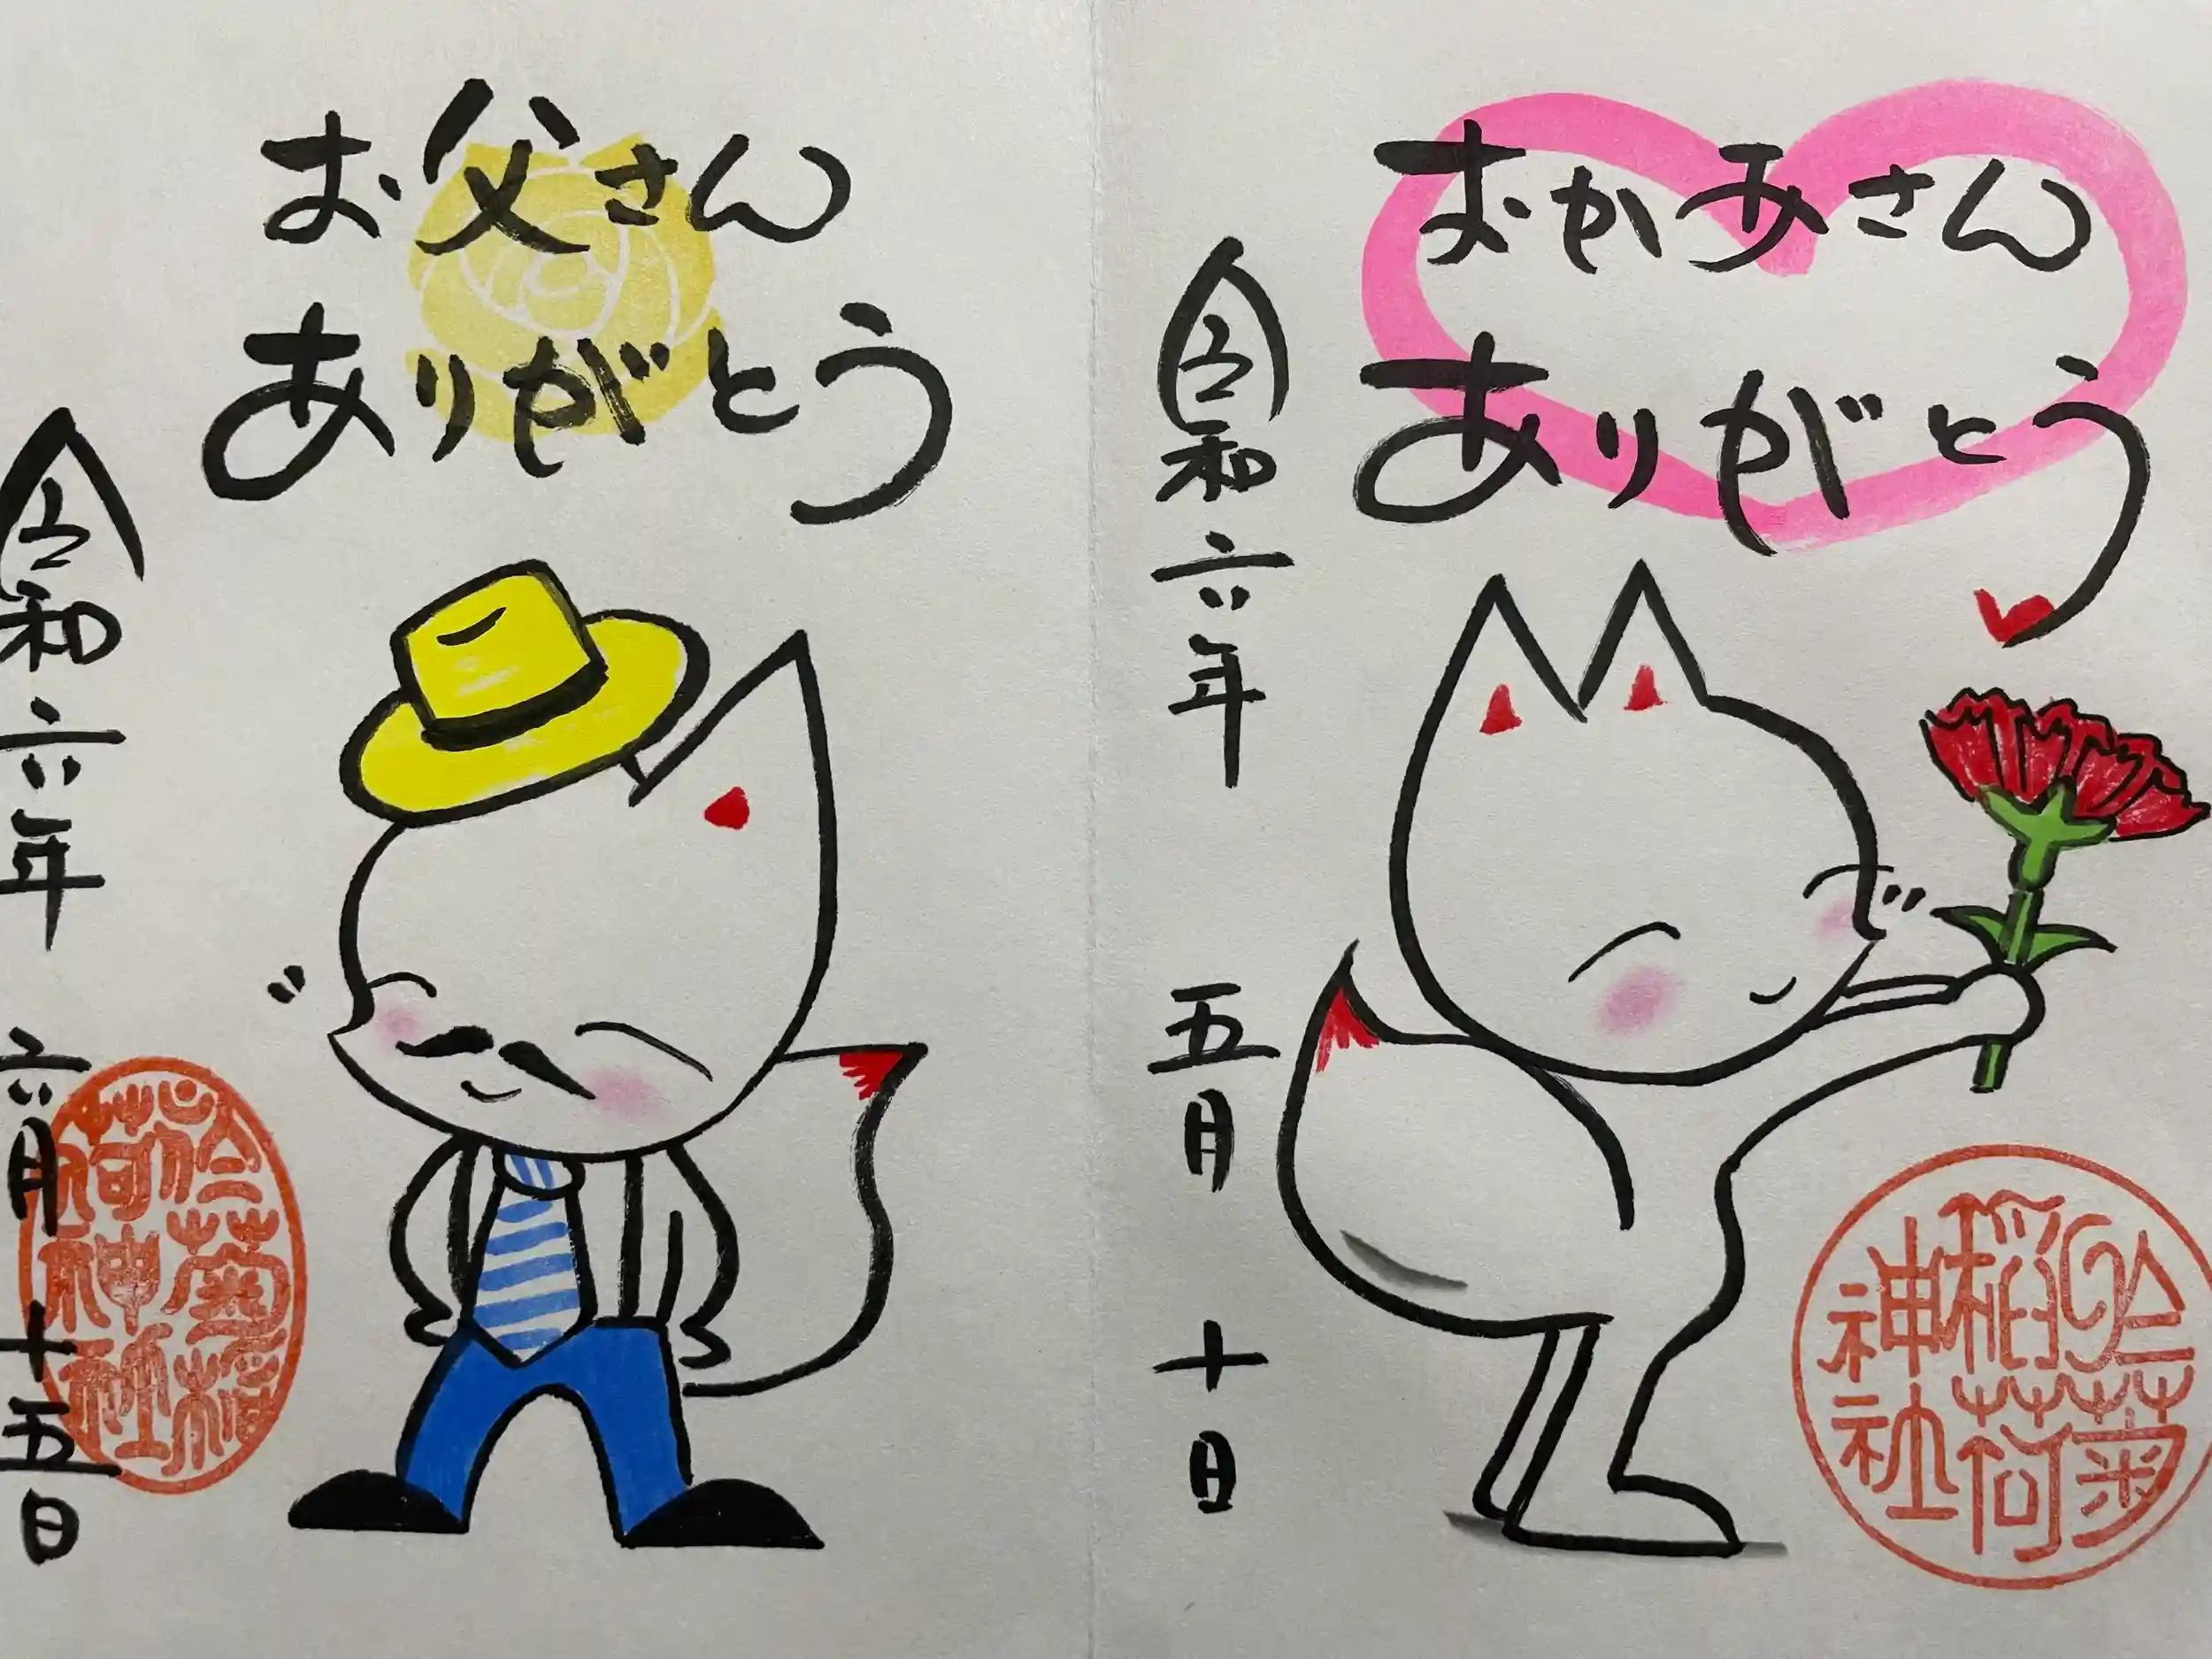 おかあさん
ありがとう
令和六年 五月 十日
於菊
稲荷
神社
お父さん
ありがとう
令和六年 六月 十五日
於菊稲
荷神社